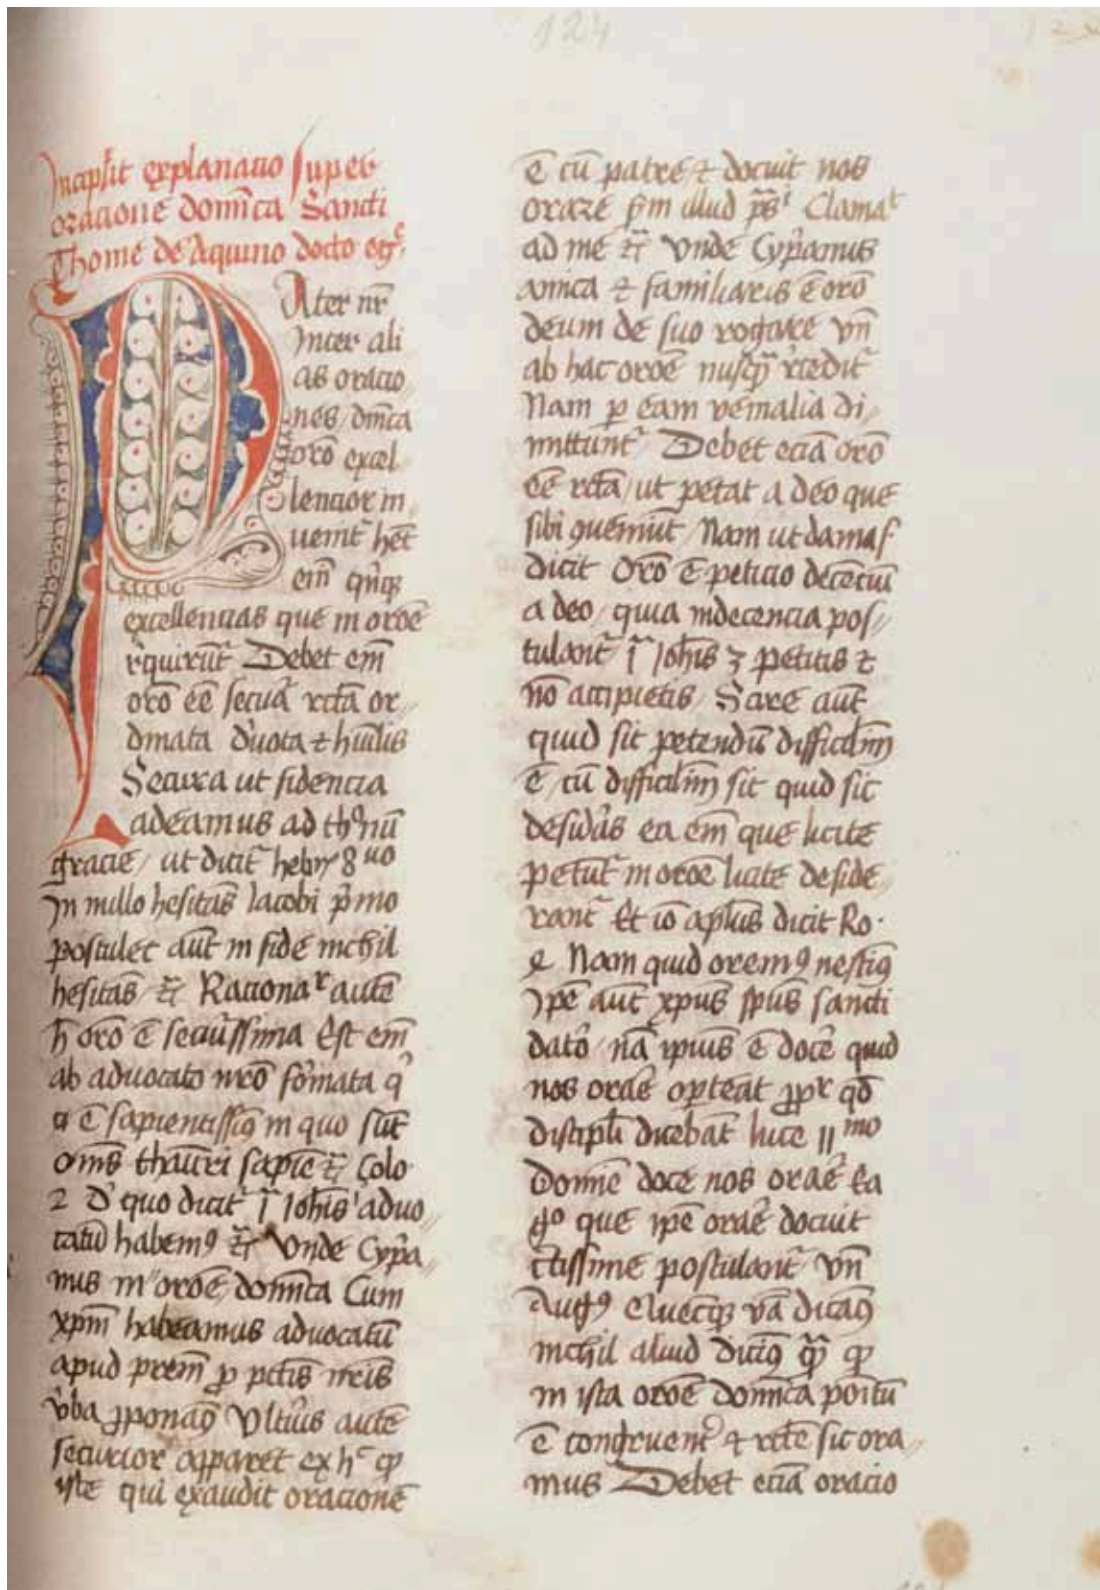 124
Incipit explanatio super
oracione domīca Sancti
Thome de Aquino docto egͬ
PAter nr̄
Inter ali
as oracio
nes dn̄ica
oro͞ excel
lencior in
uenit᷑ hēt
em̄ qn̄qꝫ
excellencias que in oro͞e
r̓quirūt᷑ Debet em̄
oro͞ ee͞ secuã rctã or
dinata d̓uota ⁊ hūilis
Secura ut fidencia
adeamus ad thͦnū
gracie / ut dicit᷑ hebr̓ 8ͧͦ
In nullo hesitās Iacobi p̓mo
postulet aūt in fide nichil
hesitās ⁊c̄ Racionaͬ autē
h̄ oro͞ ē secur̓ssima Est em̄
ab aduocato nr̄o fo̓mata q̓
a ē sapientissīꝯ in quo sūt
om̄s thaūri sapīe ⁊c̄ Colo
2 D̓ quo dicit᷑ ī Ioh̄is 1 aduo
catū habemꝯ ⁊c̄ Vnde Cyp̓a
nus in oro͞e domīca Cum
xp̄m habeamus aduocatū
apud prem̄ ꝓ pct̄is nr̄is
v̓ba ꝓponaꝯ Vlt̓ius autē
securior apparet ex hͨ ꝙ
iste qui exaudit oracionē
ē cū patre ⁊ docuit nos
orare s̄m illud p̄sͭ Clamaͭ
ad me ⁊c̄ Vnde Cyp̓anus
amica ⁊ familiaris ē oro͞
deum de suo rogare vn̄
ab hac oro͞e nusꝙ̄ r̓cedit᷑
Nam ꝑ eam venialia di
mittunt᷑ Debet eciã oro͞
ee͞ rctã / ut petat a deo que
sibi ꝯueniūt Nam ut damaſ
dicit Oro͞ ē peticio decēciū
a deo / quia indecencia pos
tulant᷑ ī Ioh̄is 3 petitis ⁊
nō accipietis / Scire aūt
quid sit petendū difficilīm
ē / cū difficilīm sit quid sic
desid̓ās ea em̄ que licite
petūt᷑ in oro͞e licite deside
rant᷑ Et io͞ apl̄us dicit Ro
8 Nam quid oremꝯ nescīꝯ
Ip̄e aūt xp̄us sp̄us sancti
datoͬ / nã ip̄ius ē doce̓ quid
nos orae̓ oporteat ꝓpͬ qd̄
discipl̄i dicebāt luce 11ͫͦ
Domīe doce nos orae̓ Ea
g̊ que ip̄e orae̓ docuit
rctissime postulant᷑ vn̄
Augꝯ eluecꝫ vã dicaꝯ
nichil aliud diciꝯ ꝙ̄ ꝙ
in ista oro͞e domīca poitū
ē congruent̓ ⁊ rctē sic ora
mus Debet eciã oracio